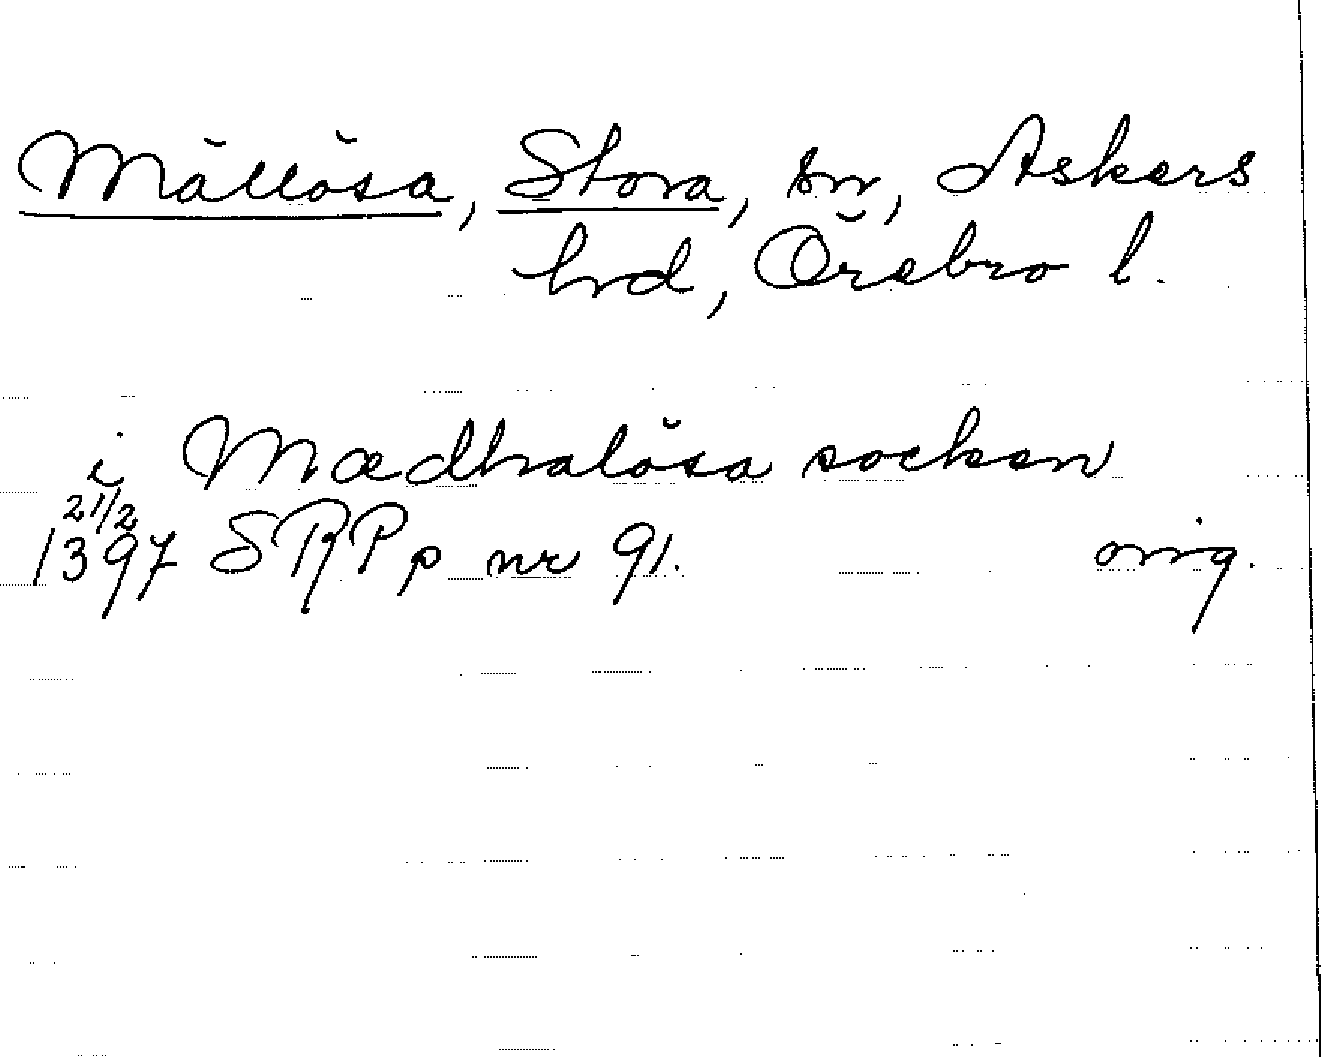 Mällösa, Stora, sn, Askers
hrd, Örebro l.
i Mædhalösa socken
21/2
1397 SRPp nr 91. orig.